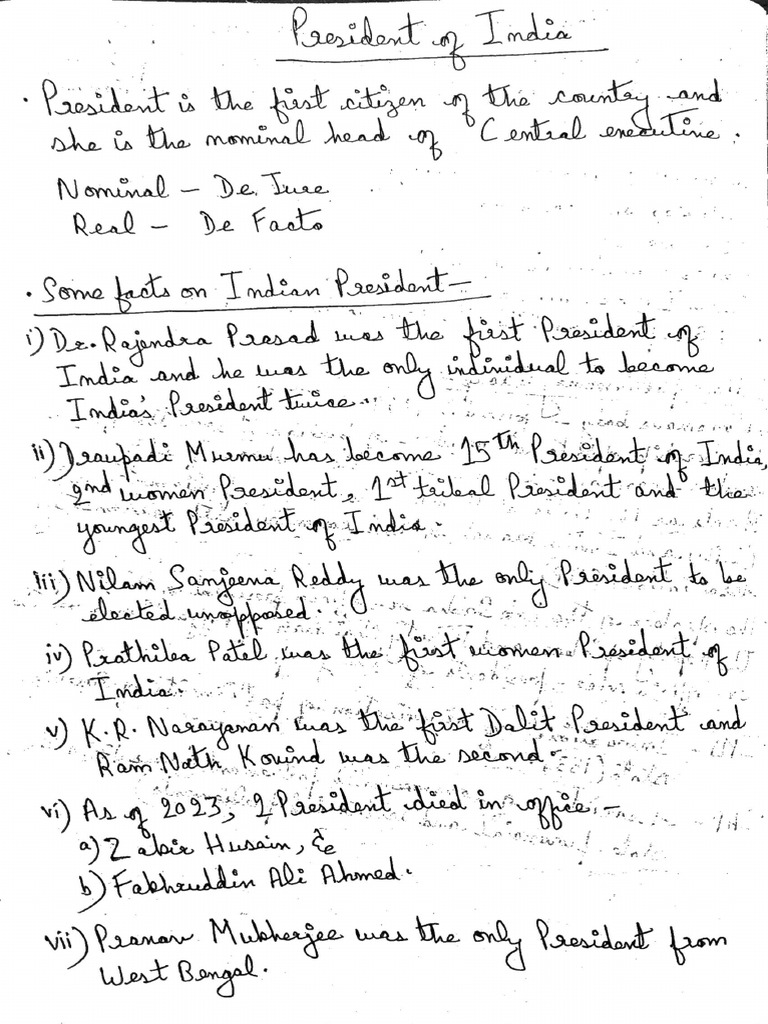 President of India
• President is the first citizen of the country and
she is the nominal head of Central executive.
Nominal – De Jure
Real – De Facto
• Some facts on Indian President –
i) Dr. Rajendra Prasad was the first President of
India and he was the only individual to become
India's President twice.
ii) Draupadi Murmu has become 15th President of India,
2nd women President, 1st tribal President and the
youngest President of India.
iii) Nilam Sanjeeva Reddy was the only President to be
elected unopposed.
iv) Prathiba Patel was the first women President of
India.
v) K.R. Narayanan was the first Dalit President and
Ram Nath Kovind was the second.
vi) As of 2023, 2 President died in office –
a) Zakir Husain, &
b) Fakhruddin Ali Ahmed.
vii) Pranav Mukherjee was the only President from
West Bengal.